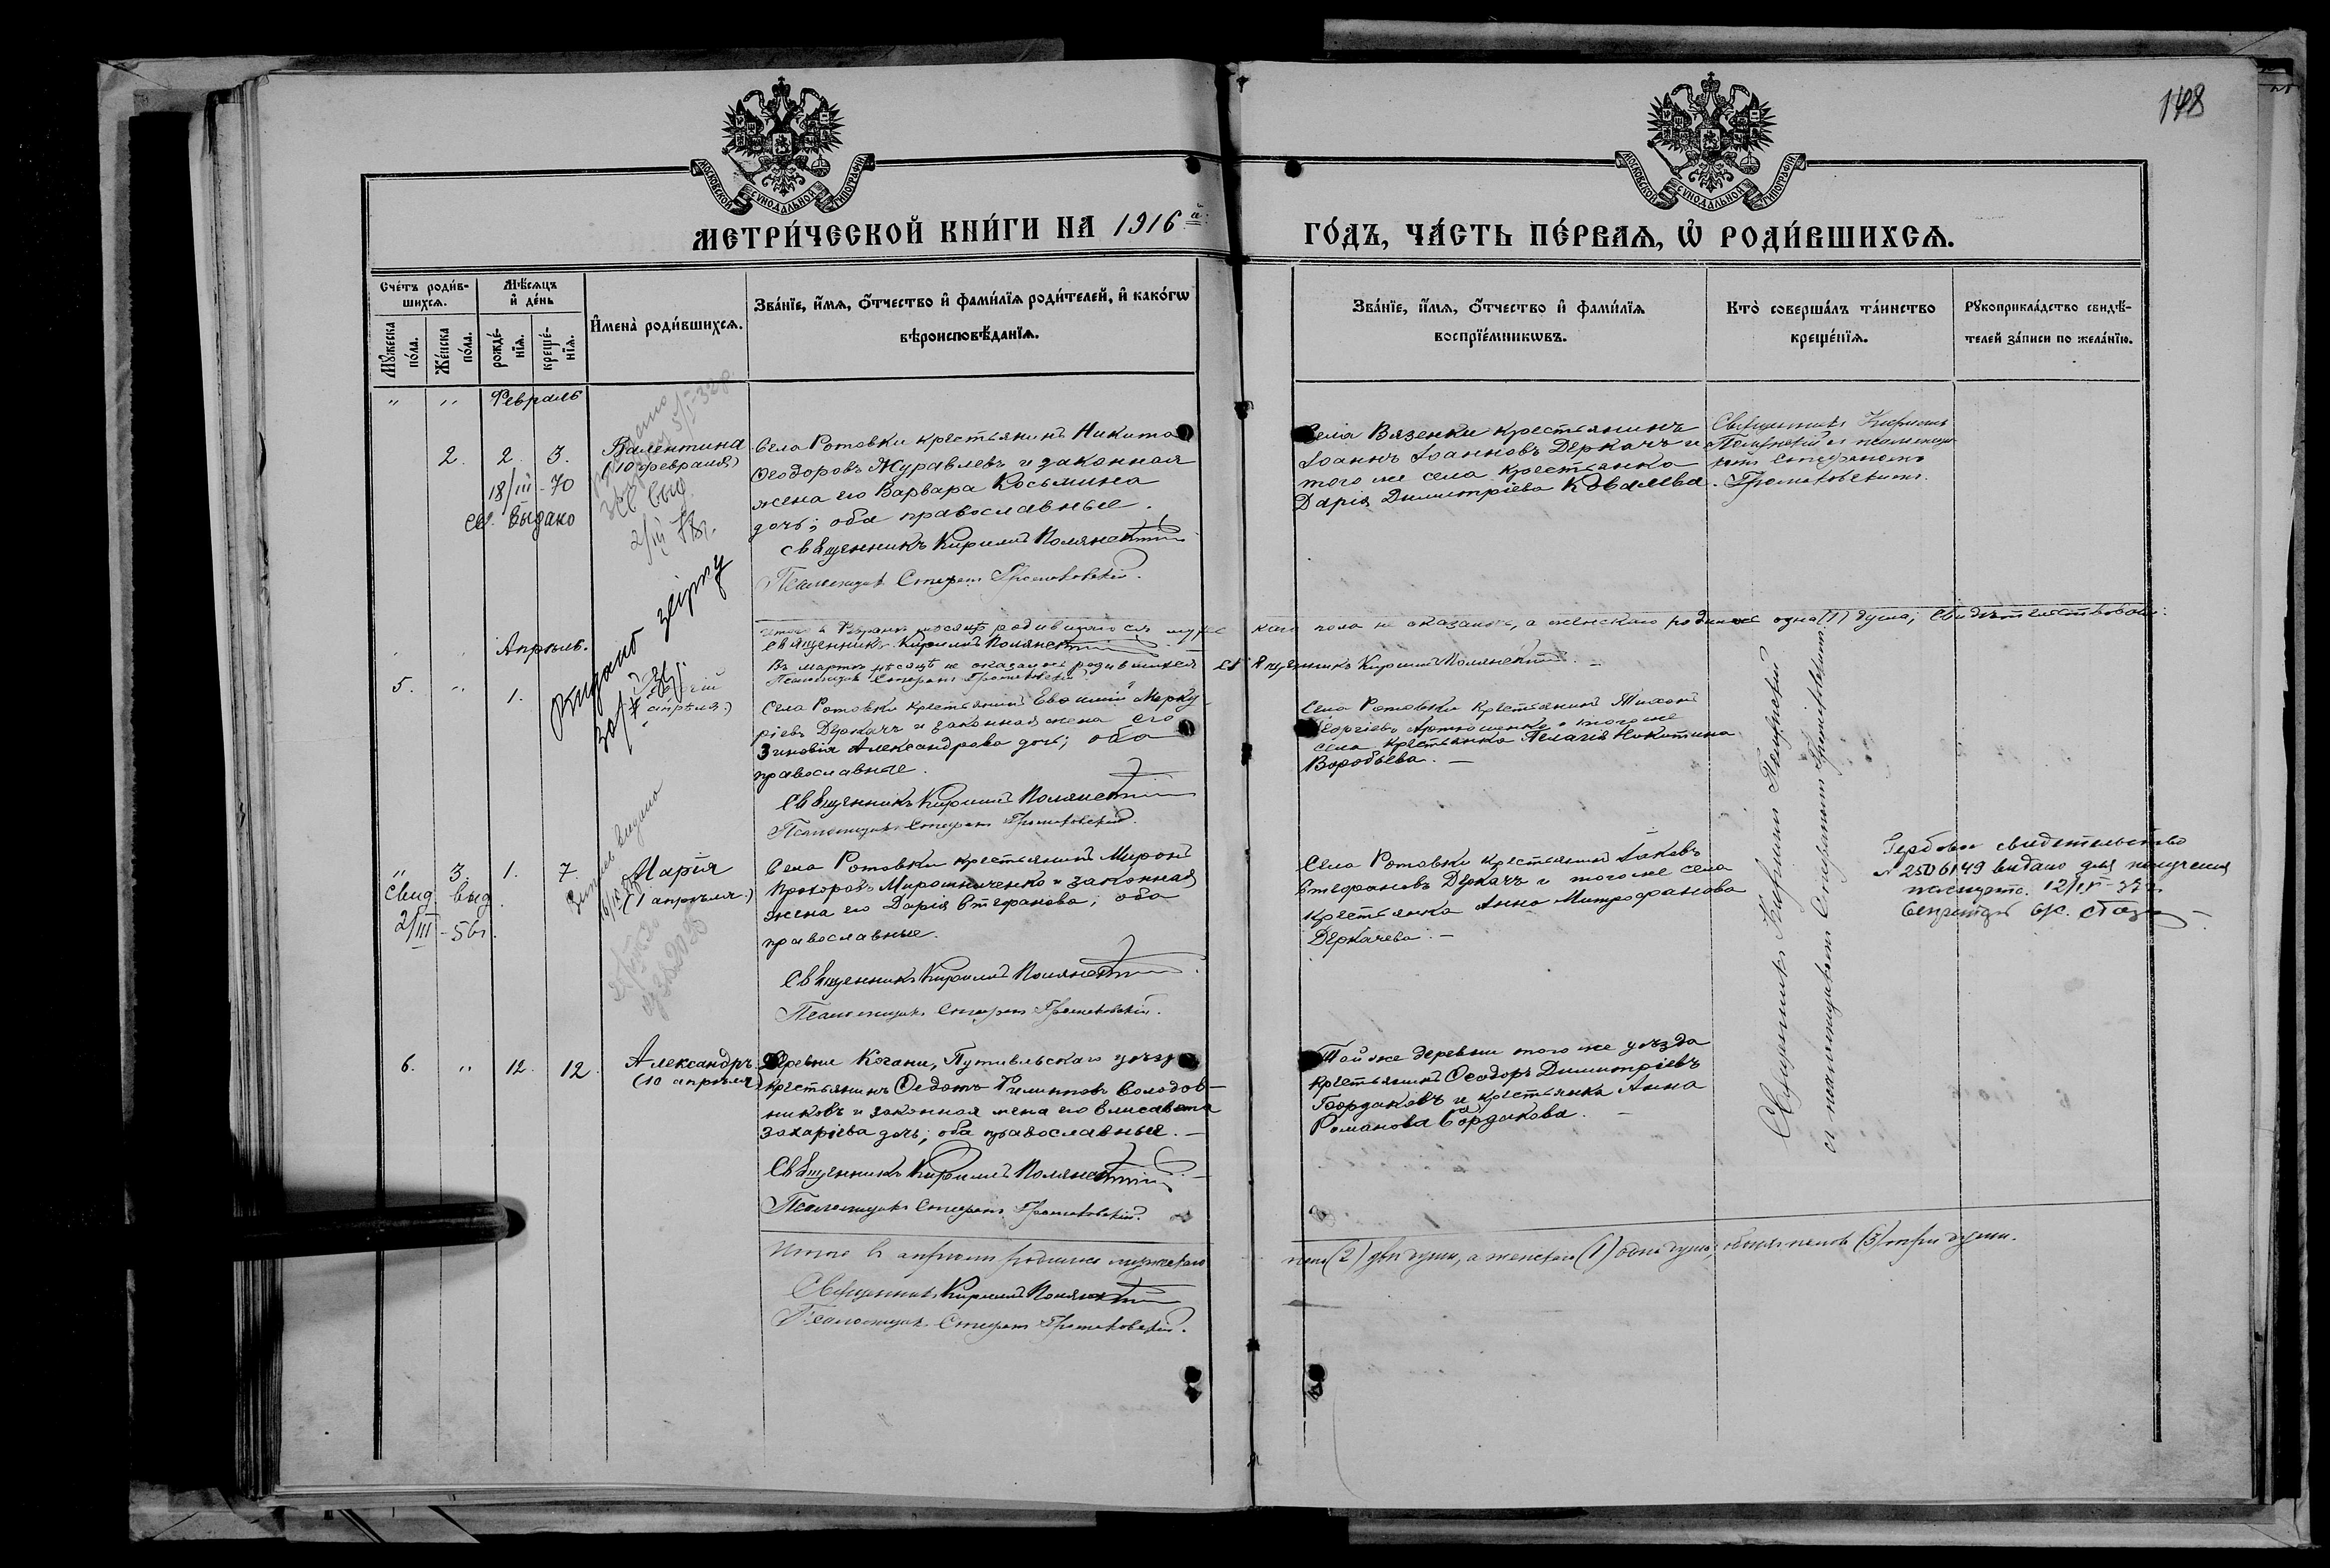 148
МОСКОВСКОЙ СѴНОДАЛЬНОЙ ТИПОГРАФІИ
МОСКОВСКОЙ СѴНОДАЛЬНОЙ ТИПОГРАФІИ
МЕТРИ́ЧЕСКОЙ КНИ́ГИ НА 1916 й
ГО́ДЪ, ЧА́СТЬ ПЕ́РВАѦ, Ѡ҆ РОДИ́ВШИХСѦ.
Сче́тъ роди́в-
шихсѧ.
Мꙋ́жеска
по́ла.
Же́нска
по́ла.
Мѣ́сѧцъ
и҆ де́нь
рожде́-
нїѧ.
креще́-
нїѧ.
И҆мена̀ роди́вшихсѧ.
Зва́нїе, и҆́мѧ, ѻ҆́тчество и҆ фами́лїѧ роди́телей, и҆ како́гѡ
вѣроисповѣ́данїѧ.
Зва́нїе, и҆́мѧ, ѻ҆́тчество и҆ фами́лїѧ
воспрїе́мникѡвъ.
Кто̀ соверша́лъ та́инство
креще́нїѧ.
Рꙋкоприкла́дство свидѣ́-
телей за́писи по жела́нїю.
" " Февраль
2. 2. 3. Валентина
(10 февраля)
18/III-70
св. выдано
Села Ротовки крестьянинъ Никита
Ѳеодоровъ Журавлевъ и законная
жена его Варвара Косьмина
дочь; оба православные.
Священникъ Кириллъ Полянскій
Псаломщикъ Стефанъ Громаковскій.
Села Вязенки крестьянинъ
Іоаннъ Іоанновъ Деркачъ и
того же села крестьянка
Дарія Димитріева Ковалева.
Священникъ Кириллъ
Полянскій съ псаломщи-
комъ Стефаномъ
Громаковскимъ.
Итого въ Февралѣ мѣсяцѣ родившагося мужескаго пола не оказалось, а женскаго родилась одна (1) душа; свидѣтельствовали:
Священникъ Кириллъ Полянскій
Въ мартѣ мѣсяцѣ не оказалось родившихся Священникъ Кириллъ Полянскій
Псаломщикъ Стефанъ Громаковскій
Апрѣль.
5. " 1.
апрѣля.)
Выдано
Села Ротовки крестьянинъ Евѳимій Мерку-
ріевъ Деркачъ и законная жена его
Зиновія Александрова дочь; оба
православные.
Священникъ Кириллъ Полянскій
Псаломщикъ Стефанъ Громаковскій.
Села Ротовки крестьянинъ Тихонъ
Георгіевъ Артюшенко и того же
села крестьянка Пелагія Никитина
Воробьева.
" 3. 1. 7. Марія
(1 апрѣля.)
Свид. выд.
2/III-56г.
Села Ротовки крестьянинъ Миронъ
Прохоровъ Мирошниченко и законная
жена его Дарія Стефанова; оба
православные.
Священникъ Кириллъ Полянскій
Псаломщикъ Стефанъ Громаковскій.
Села Ротовки крестьянинъ Іаковъ
Стефановъ Деркачъ и того же села
крестьянка Анна Митрофанова
Деркачева.
Священникъ Кириллъ Полянскій
съ псаломщикомъ Стефаномъ Громаковскимъ
свидетельство
№ 2506149 выдано для получения
паспорта. 12/IV-37г.
6. " 12. 12. Александръ
(10 апрѣля)
Деревни Когани, Путивльскаго уѣзда
крестьянинъ Ѳедотъ Филипповъ Солодов-
никовъ и законная жена его Елисавета
Захаріева дочь; оба православные.
Священникъ Кириллъ Полянскій
Псаломщикъ Стефанъ Громаковскій.
Той же деревни того же уѣзда
крестьянинъ Ѳеодоръ Димитріевъ
Бордаковъ и крестьянка Анна
Романова Бордакова.
Итого въ апрѣлѣ родилось мужескаго пола (2) двѣ души, а женскаго (1) одна душа; обоихъ половъ (3) три души.
Священникъ Кириллъ Полянскій
Псаломщикъ Стефанъ Громаковскій.